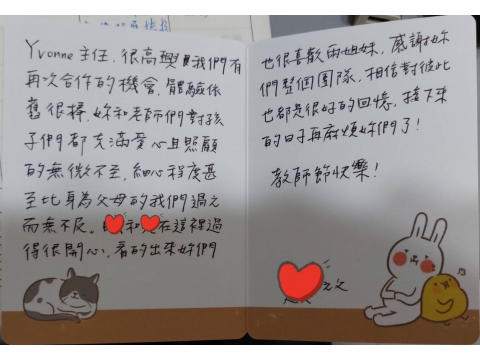 Yvonne主任，很高興我們有
再次合作的機會，體驗依
舊很棒，妳和老師們對孩
子們都充滿愛心且照顧
的無微不至，細心程度甚
至比身為父母的我們過之
而無不及。和在這裡過
得很開心，看的出來妳們
也很喜歡兩姐妹，感謝妳
們整個團隊，相信對彼此
也都是很好的回憶，接下來
的日子再麻煩妳們了！
教師節快樂！